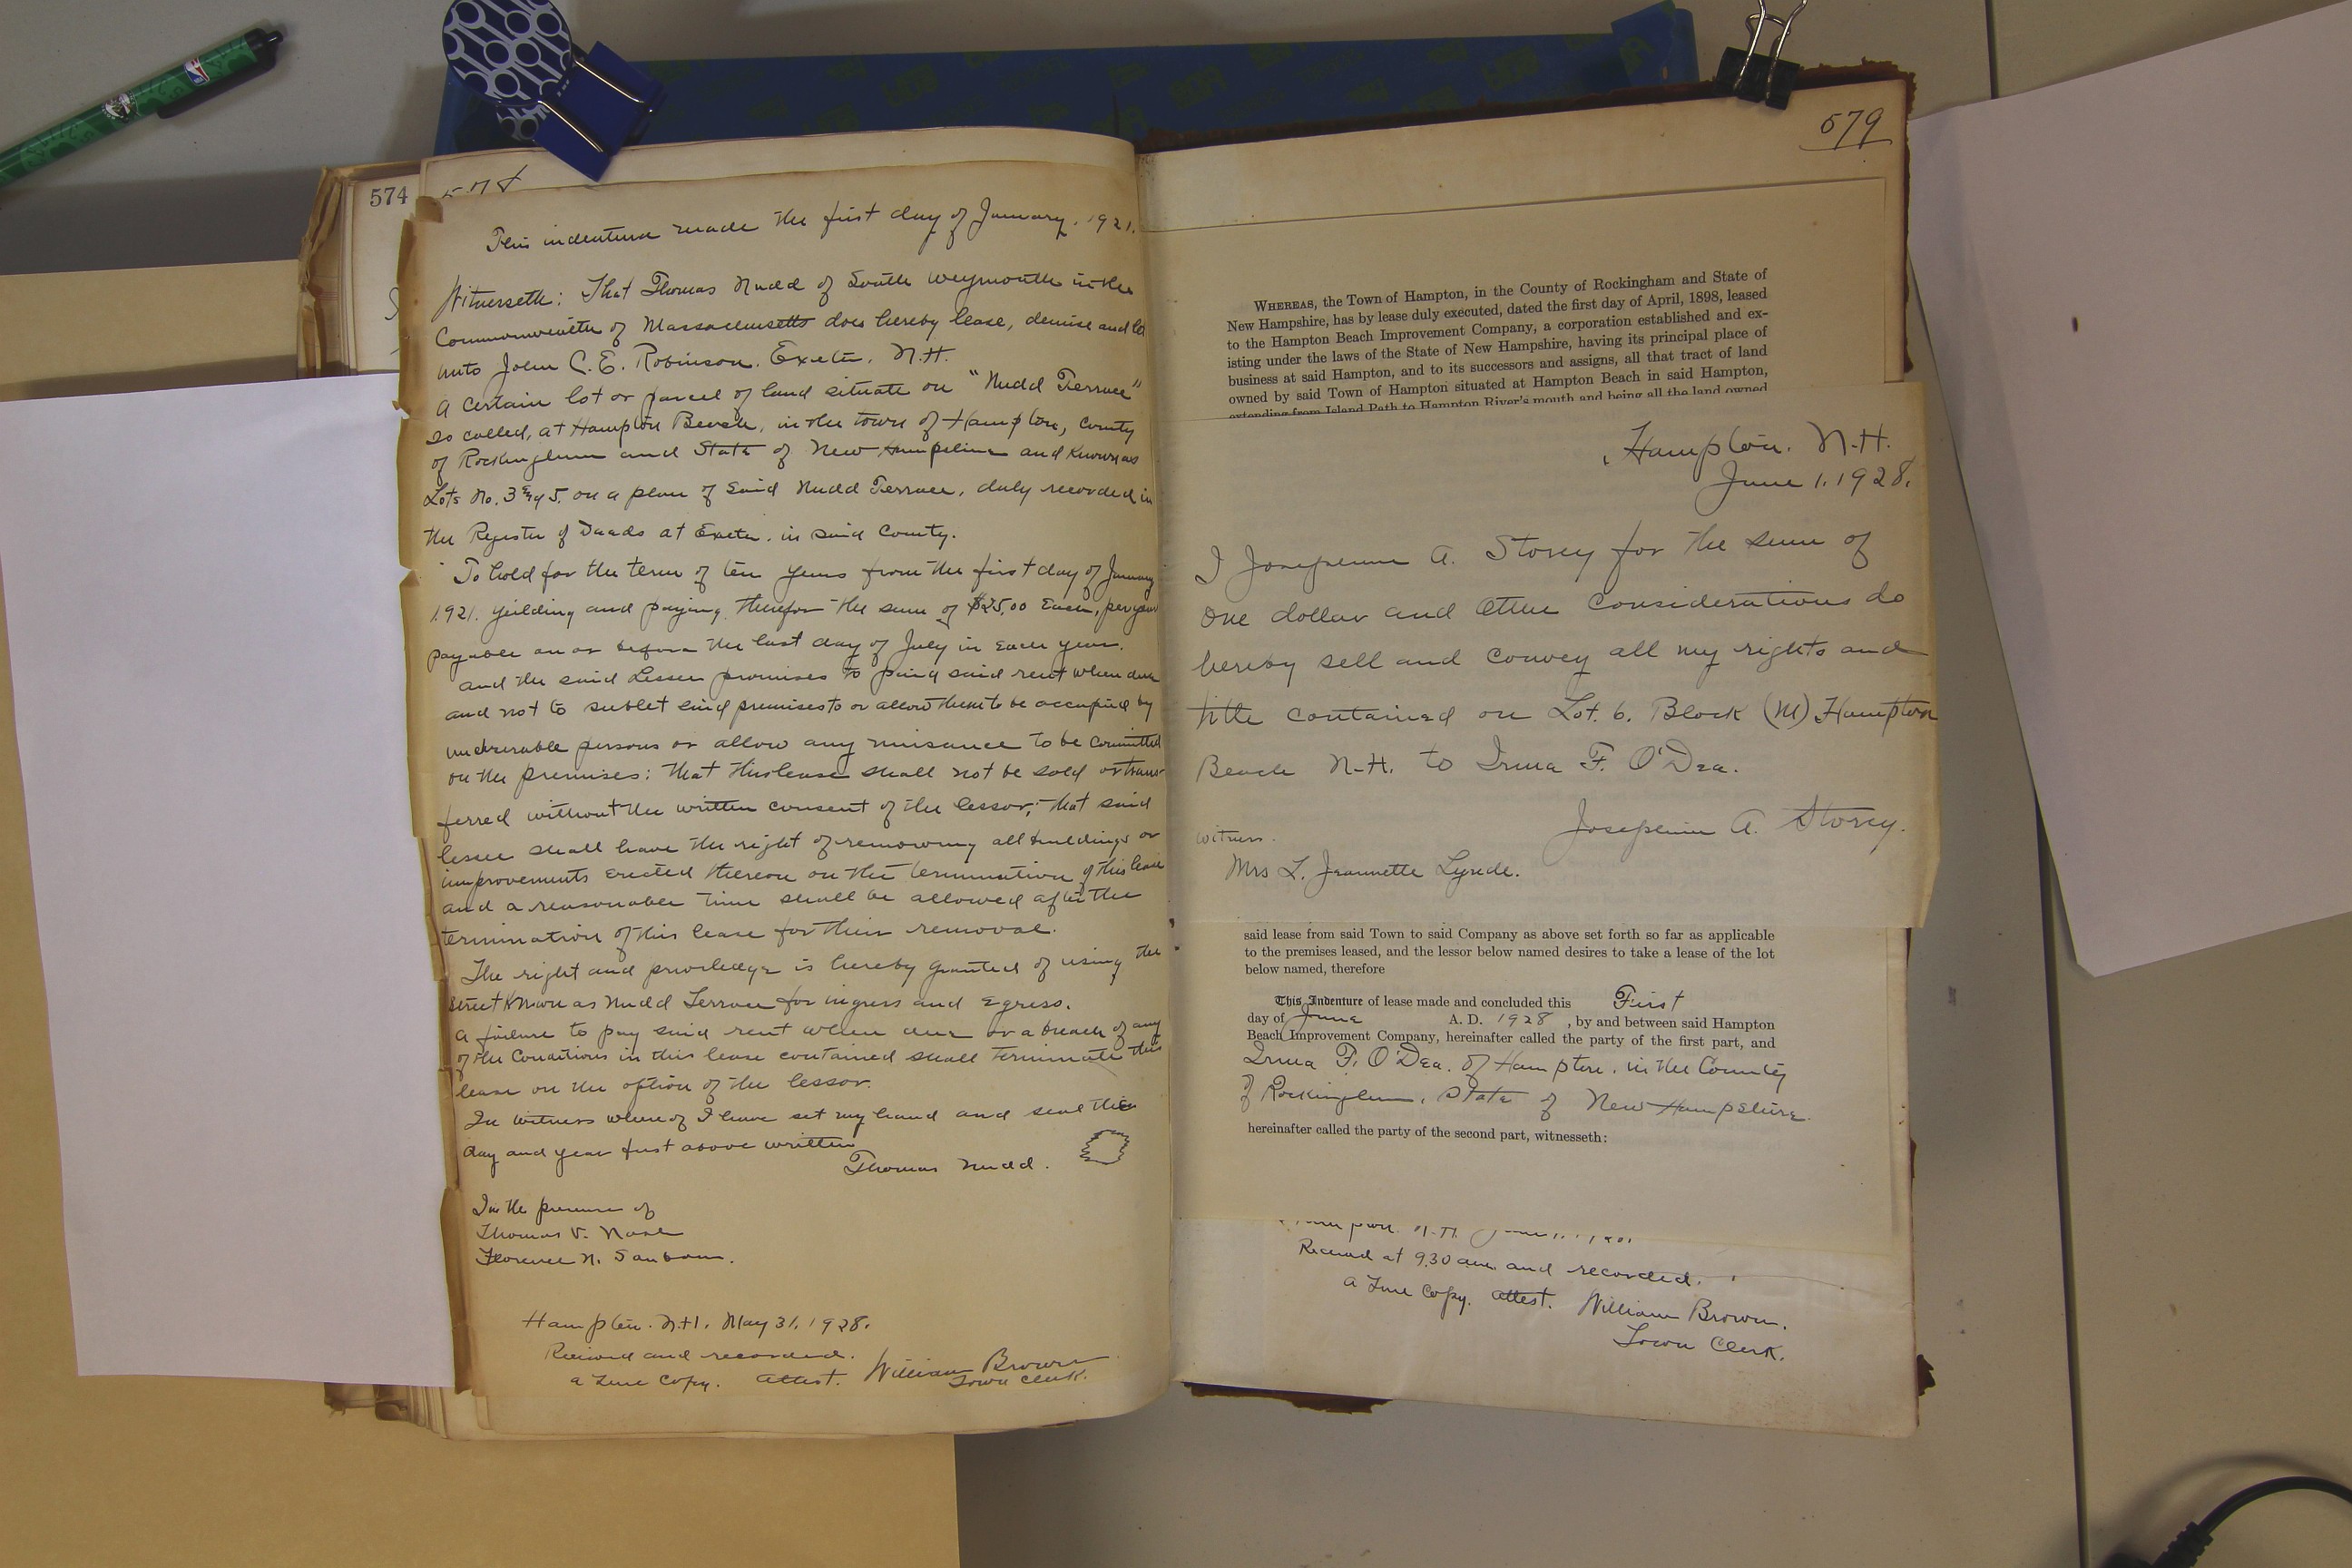 574
578
This indenture made the first day of January, 1921.
Witnesseth: That Thomas Nudd of South Weymouth in the
Commonwealth of Massachusetts does hereby lease, demise and let
unto John C. E. Robinson, Exeter, N.H.
A certain lot or parcel of land situate on "Nudd Terrace"
so called, at Hampton Beach, in the town of Hampton, County
of Rockingham and State of New Hampshire and known as
Lots No. 3 & 5, on a plan of said Nudd Terrace, duly recorded in
the Register of Deeds at Exeter, in said County.
To hold for the term of ten years from the first day of January
1921. yeilding and paying therefor the sum of $25,00 Each, per year
payable on or before the last day of July in each year.
and the said Lessee promises to paid said rent when due
and not to sublet said premises to or allow them to be occupied by
undesirable persons or allow any nuisance to be committed
on the premises: that this lease shall not be sold or trans-
ferred without the written consent of the lessor; that said
lessee shall have the right of removing all buildings or
improvements erected thereon on the termination of this lease
and a reasonable time shall be allowed after the
termination of this lease for their removal.
The right and priviledge is hereby granted of using the
street known as Nudd Terrace for ingress and egress.
A failure to pay said rent when due or a breach of any
of the Conditions in this lease contained shall terminate this
lease on the option of the lessor.
In witness whereof I have set my hand and seal the
day and year first above written
Thomas Nudd.
In the presence of
Thomas V. Nash
Florence N. Sanborn.
Hampton. N.H. May 31, 1928.
Received and recorded.
a True Copy. Attest. William Brown
Town Clerk.
579
WHEREAS, the Town of Hampton, in the County of Rockingham and State of
New Hampshire, has by lease duly executed, dated the first day of April, 1898, leased
to the Hampton Beach Improvement Company, a corporation established and ex-
isting under the laws of the State of New Hampshire, having its principal place of
business at said Hampton, and to its successors and assigns, all that tract of land
owned by said Town of Hampton situated at Hampton Beach in said Hampton,
extending from Island Path to Hampton River's mouth and being all the land owned
Hampton. N.H.
June 1, 1928.
I Josephine A. Storey for the sum of
one dollar and other considerations do
hereby sell and convey all my rights and
title contained on Lot. 6. Block (M) Hampton
Beach N.H. to Irma F. O'Dea.
Josephine A. Storey.
Witness.
Mrs L. Jeannette Lynde.
said lease from said Town to said Company as above set forth so far as applicable
to the premises leased, and the lessor below named desires to take a lease of the lot
below named, therefore
This Indenture of lease made and concluded this First
day of June A. D. 1928, by and between said Hampton
Beach Improvement Company, hereinafter called the party of the first part, and
Irma F. O'Dea. of Hampton, in the County
of Rockingham, State of New Hampshire
hereinafter called the party of the second part, witnesseth:
Received at 9.30 am. and recorded.
a True Copy. Attest. William Brown.
Town Clerk.